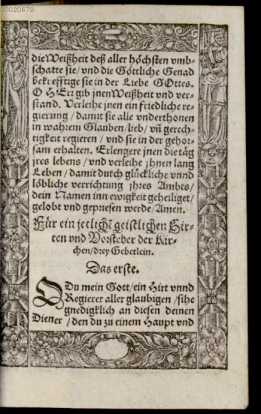 die Weißheit deß aller höchsten vmb⸗
schatte sie / vnd die Göttliche Genad
bekrefftige sie in der Liebe GOttes.
O HErr gib jnen Weißheit vnd ver⸗
stand. Verleihe jnen ein friedliche re⸗
gierung / damit sie alle vnderthonen
in wahrem Glauben / lieb / vñ gerech⸗
tigkeit regieren / vnd sie in der gehor⸗
sam erhalten. Erlengere jnen die täg
jres lebens / vnd verleihe jhnen lang
Leben / damit durch glückliche vnnd
löbliche verrichtung jhres Ambts /
dein Namen inn ewigkeit geheiliget /
gelobt vnd gepriesen werde / Amen.
Für ein jetlichē geistlichen Hir⸗
ten vnd Vorsteher der Kir⸗
chen / drey Gebetlein.
Das erste.
O Du mein Gott / ein Hirt vnnd
Regierer aller glaubigen / sihe
gnedigklich an diesen deinen
Diener / den du zu einem Haupt vnd